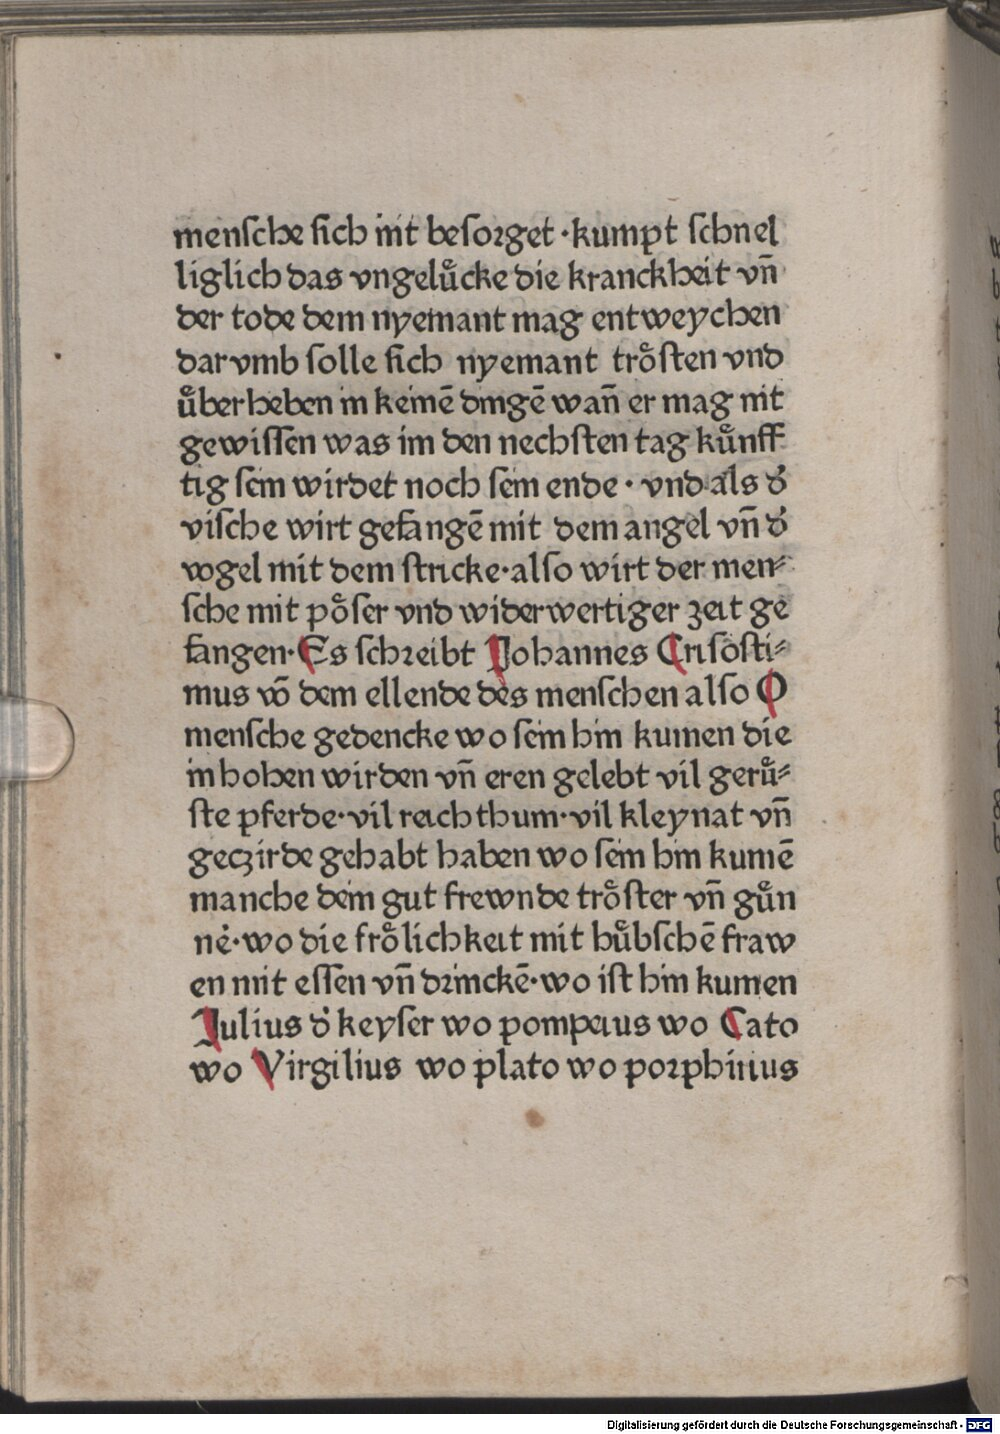 menſche ſich nit beſorget ·kumpt ſchnel
liglich das vngeluͤcke die kranckheit vn̄
der tode dem nyemant mag entweychen
dar vmb ſolle ſich nyemant troͤſten vnd
uͤberheben in keinē dingē wan̄ er mag nit
gewiſſen was im den nechſten tag kuͤnff
tig ſein wirdet noch ſein ende · vnd als dʾ
viſche wirt gefangē mit dem angel vn̄ dʾ
vogel mit dem ſtricke·alſo wirt der men⸗
ſche mit poͤſer vnd widerwertiger zeit ge
fangen·Es ſchreibt Johannes Criſoſti⸗
mus vō dem ellende des menſchen alſo O
menſche gedencke wo ſein hin kumen die
in hohen wirden vn̄ eren gelebt vil geruͤ⸗
ſte pferde·vil reichthum·vil kleynat vn̄
geczirde gehabt haben wo ſein hin kumē
manche dein gut frewnde troͤſter vn̄ guͤn
nē·wo die froͤlichkeit mit huͤbſchē fraw
en mit eſſen vn̄ drinckē·wo iſt hin kumen
Julius dʾ keyſer wo pompeius wo Cato
wo Virgilius wo plato wo porphirius
Digitalisierung gefördert durch die Deutsche Forschungsgemeinschaft - DFG